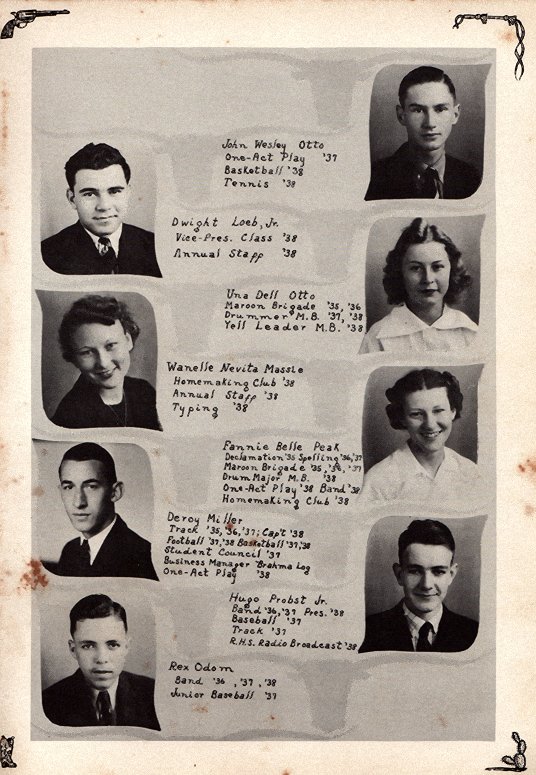 John Wesley Otto
One-Act Play '37
Basketball '38
Tennis '38
Dwight Loeb, Jr.
Vice-Pres. Class '38
Annual Staff '38
Una Dell Otto
Maroon Brigade '35, '36
Drummer M.B. '37, '38
Yell Leader M.B. '38
Wanelle Nevita Massie
Homemaking Club '38
Annual Staff '38
Typing '38
Fannie Belle Peak
Declamation '35 Spelling '36, '37
Maroon Brigade '35, '36, '37
Drum Major M.B. '38
One-Act Play '38 Band '38
Homemaking Club '38
Deroy Miller
Track '35, '36, '37; Cap't '38
Football '37, '38 Basketball '37, '38
Student Council '37
Business Manager Brahma Log
One-Act Play '38
Hugo Probst Jr.
Band '36, '37 Pres. '38
Baseball '37
Track '37
R.H.S. Radio Broadcast '38
Rex Odom
Band '36, '37, '38
Junior Baseball '37